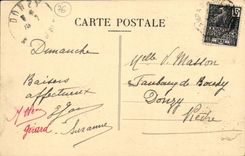 CARTE POSTALE
DONZY
76
Dimanche
Baisers
affectueux
Suzanne
Gérard
Melle V. Masson
Faubourg de Bouhy
Donzy
Nièvre